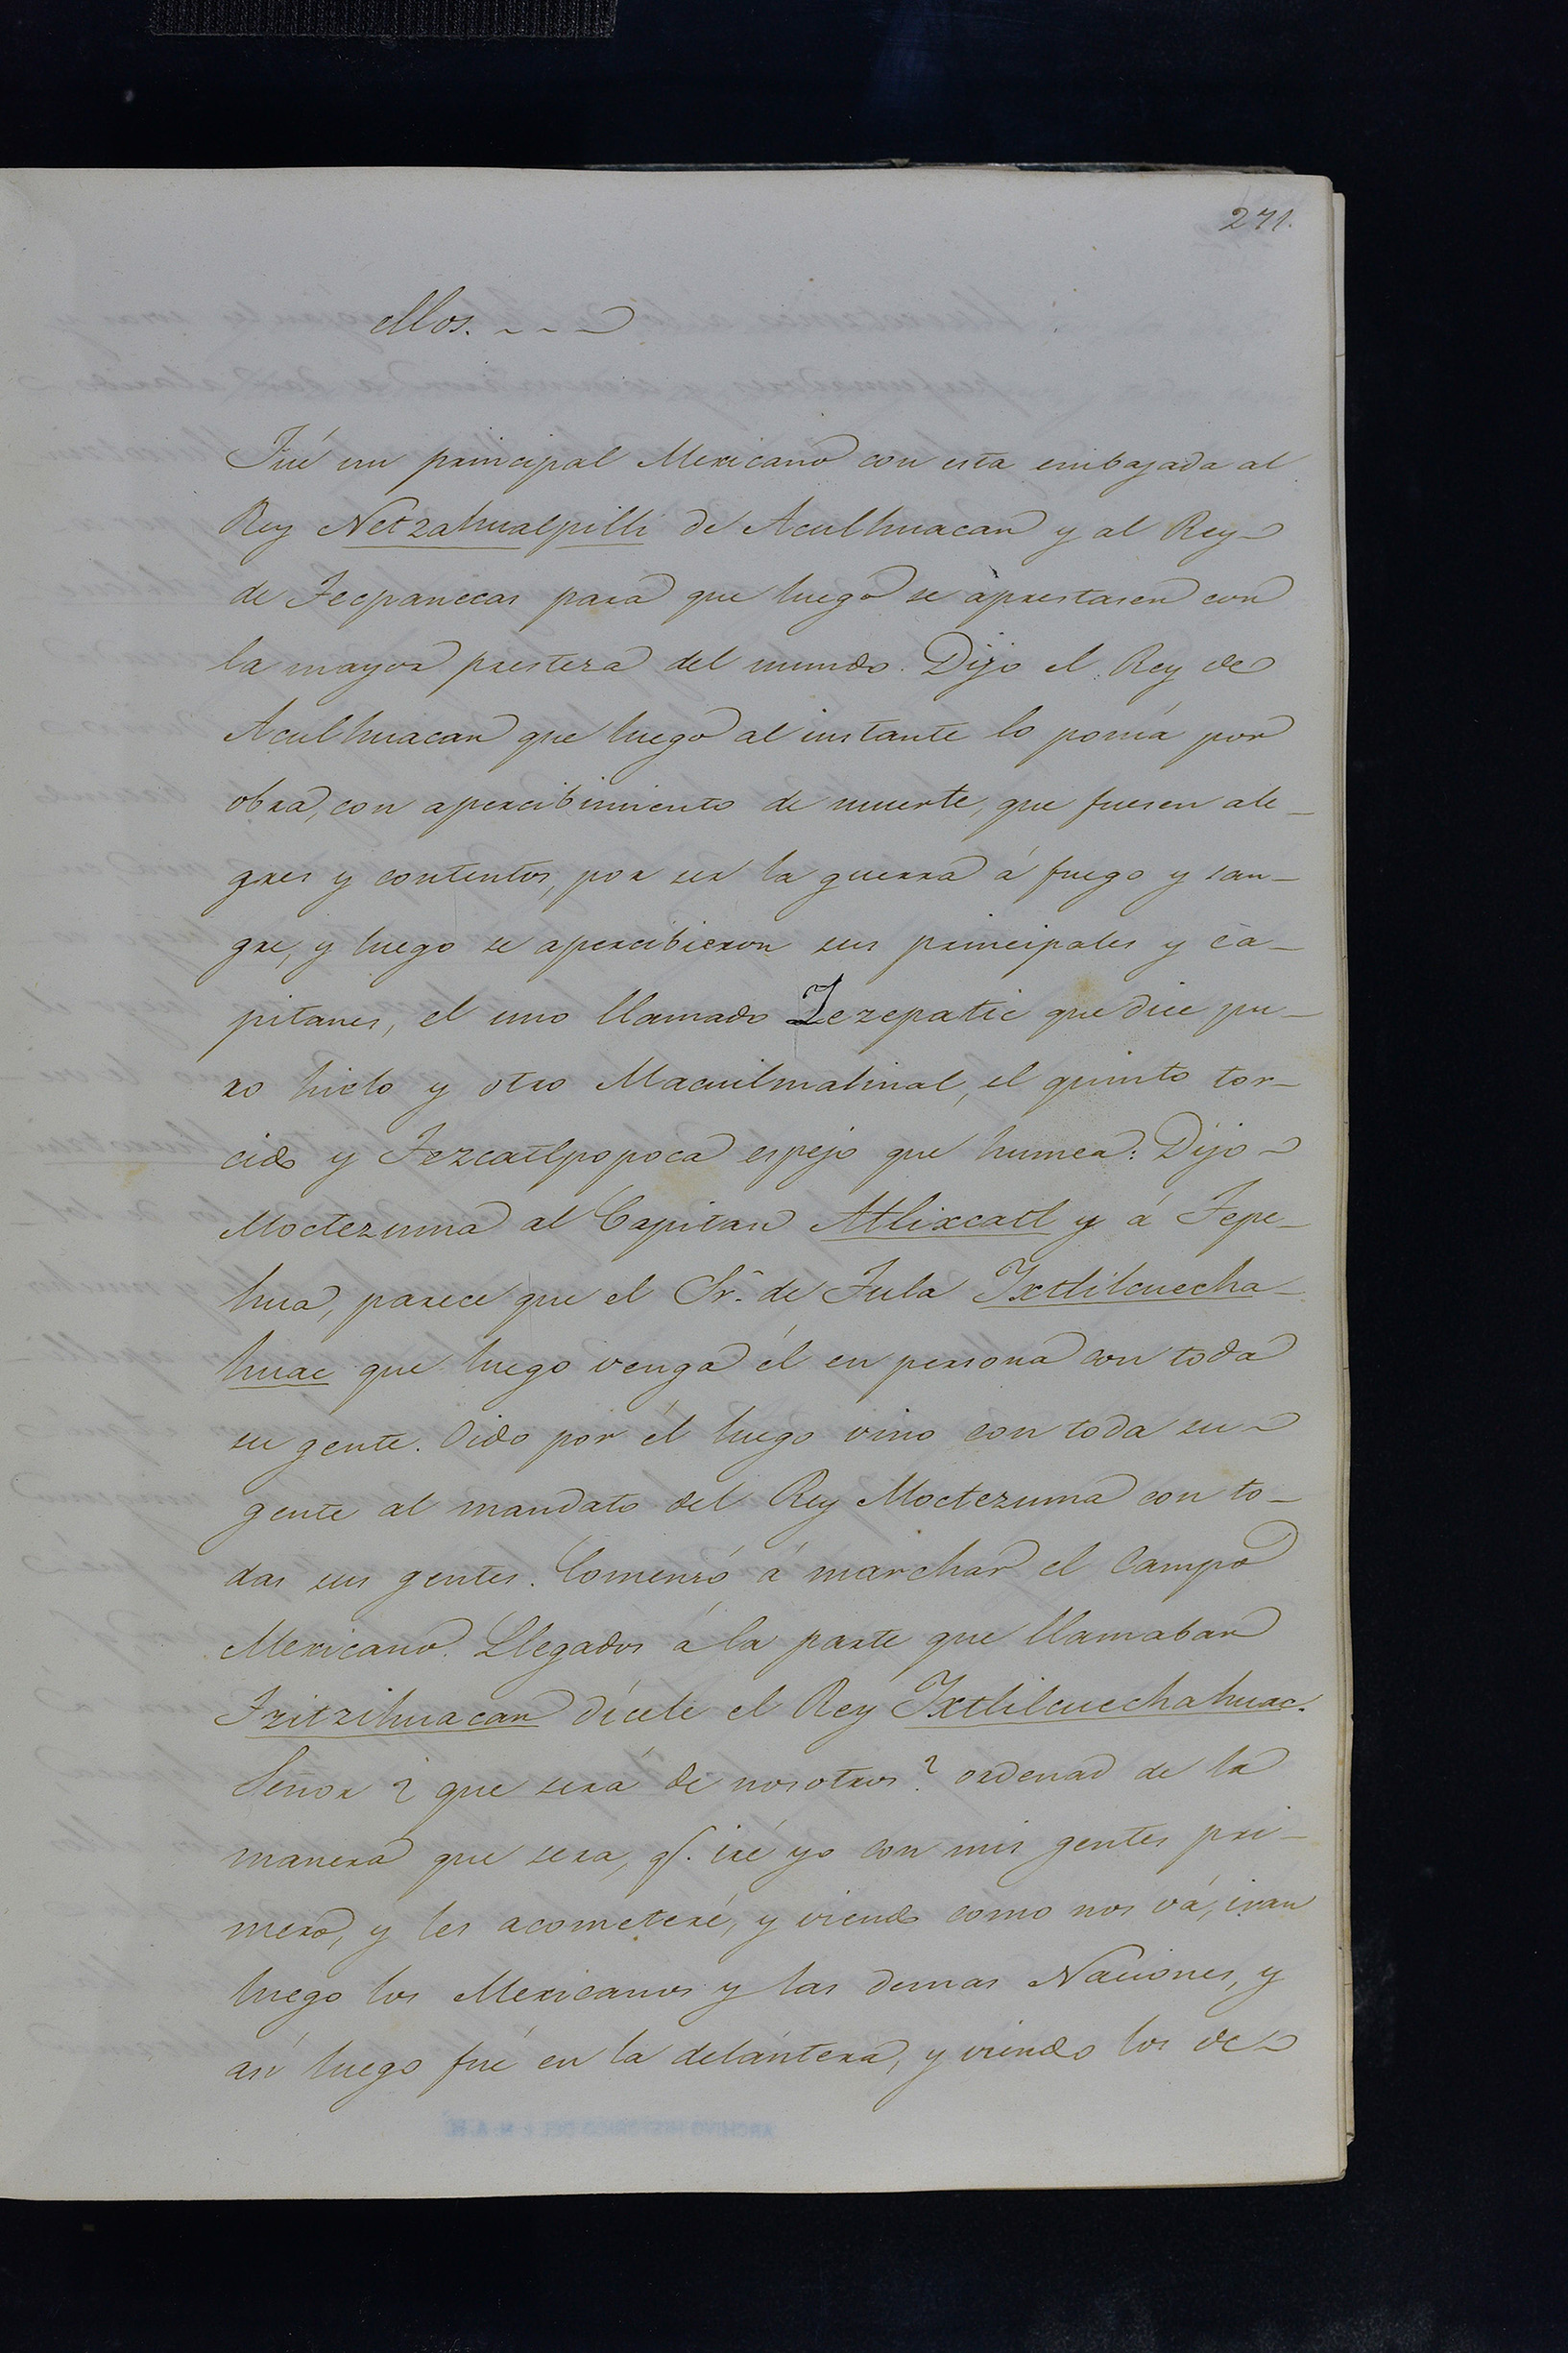 271.
ellos. - - -
Fué un principal Mexicano con esta embajada al
Rey Netzahualpilli de Aculhuacan y al Rey -
de Tecpanecas para que luego se aprestasen con
la mayor presteza del mundo. Dijo el Rey de
Aculhuacan que luego al instante lo ponía por
obra, con apercibimiento de muerte, que fuesen ale-
gres y contentos, por ser la guerra á fuego y san-
gre, y luego se apercibieron sus principales y ca-
pitanes, el uno llamado Tezepatic que dice pu-
ro hielo y otro Macuilmalinal, el quinto tor-
cido y Tezcatlpopoca espejo que humea: Dijo -
Moctezuma al Capitan Atlixcatl y á Tepe-
hua, parece que el Sr. de Tula Ixtlilcuecha-
huac que luego venga él en persona con toda
su gente. Oido por él luego vino con toda su -
gente al mandato del Rey Moctezuma con to-
das sus gentes. Comenzó á marchar el Campo
Mexicano. Llegados á la parte que llamaban
Tzitzihuacan dícele el Rey Ixtlilcuechahuac.
Señor ¿ que será de nosotros? ordenad de la
manera que sera, q. iré yo con mis gentes pri-
mero, y les acometeré, y viendo como nos vá, iran
luego los Mexicanos y las demas Naciones, y
asi luego fué en la delantera, y viendo los de -